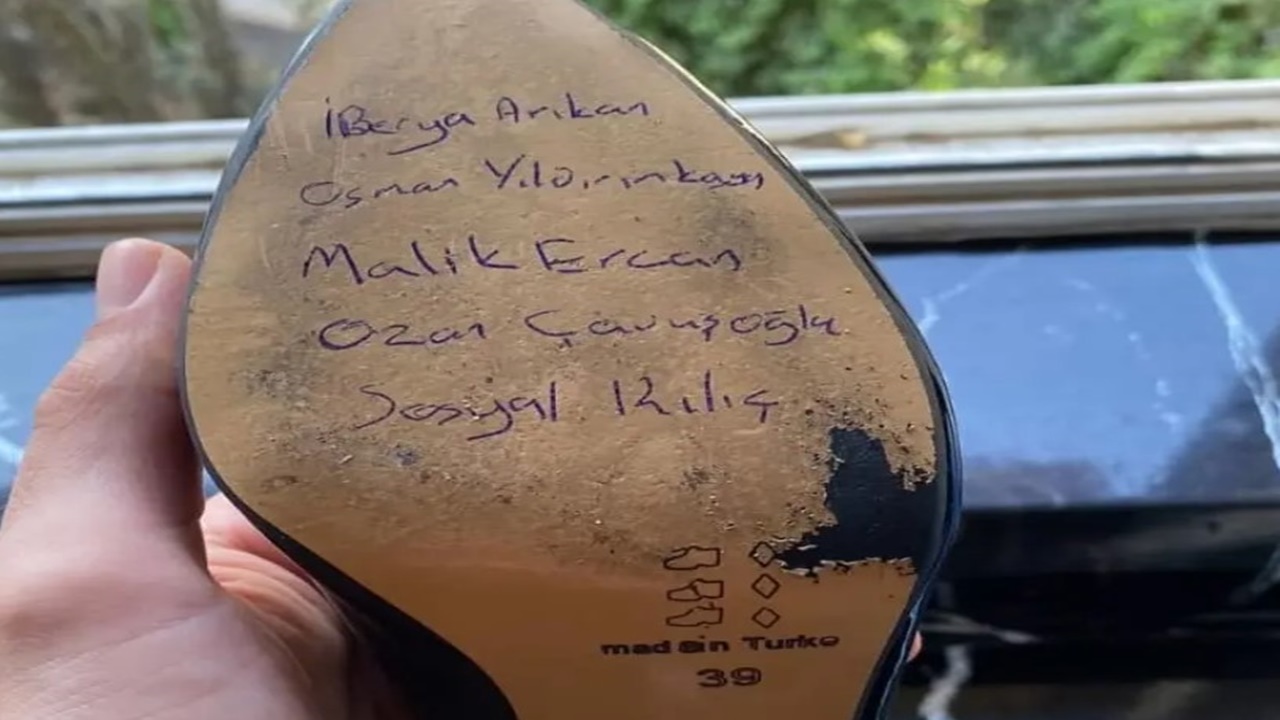 İBerya Arıkan
Osman Yıldırımkaya
Malik Ercan
Ozan Çavuşoğlu
Sosyal Kılıç
made in Turkey
39